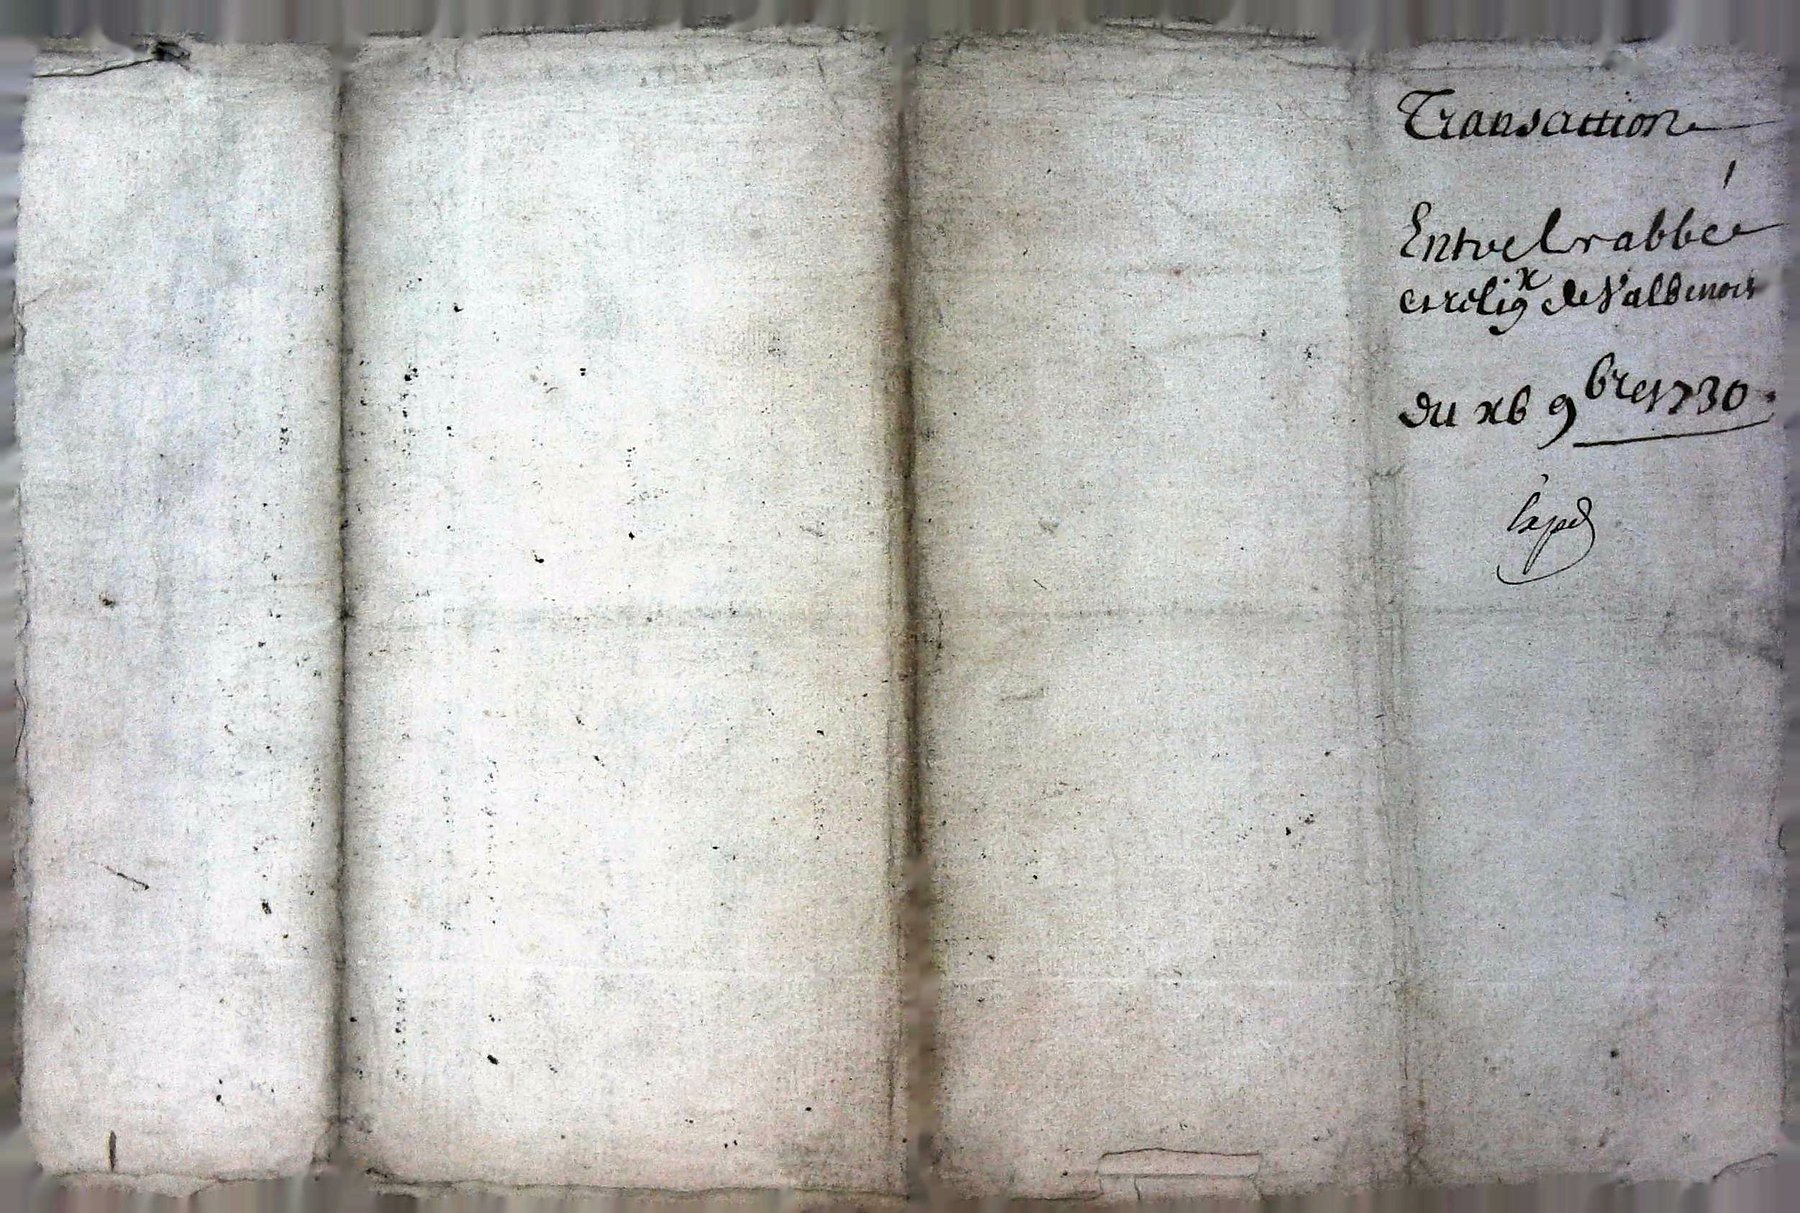 Transaction
Entre lrabbé
et relig^x de Valbenoite
du xb 9^bre 1730
Exped